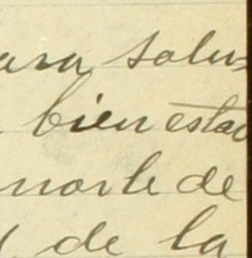 ara salu-
bien estad
norte de
de la